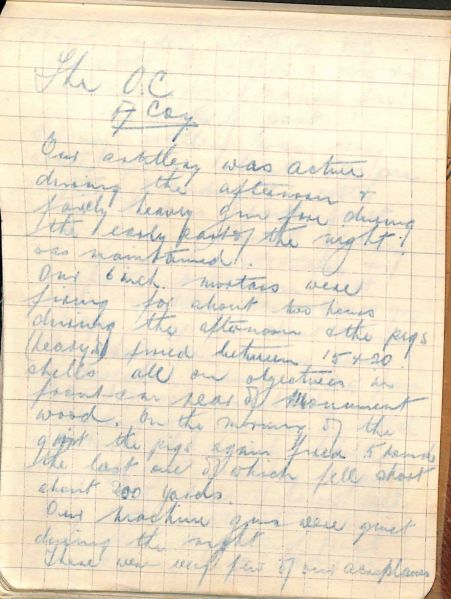 The O.C
17 Coy
Our artillery was active
during the afternoon &
fairly heavy gun fire during
the early part of the night
was maintained.
Our 6 inch. mortars were
firing for about two hours
during the afternoon & the pigs
(heavy) fired between 15 & 20
shells all on objectives in
front and rear of Monument
wood. On the morning of the
the pigs again fired 5 rounds
the last one of which fell short
about 200 yards.
Our machine guns were quiet
during the night
There were very few of our aeroplanes